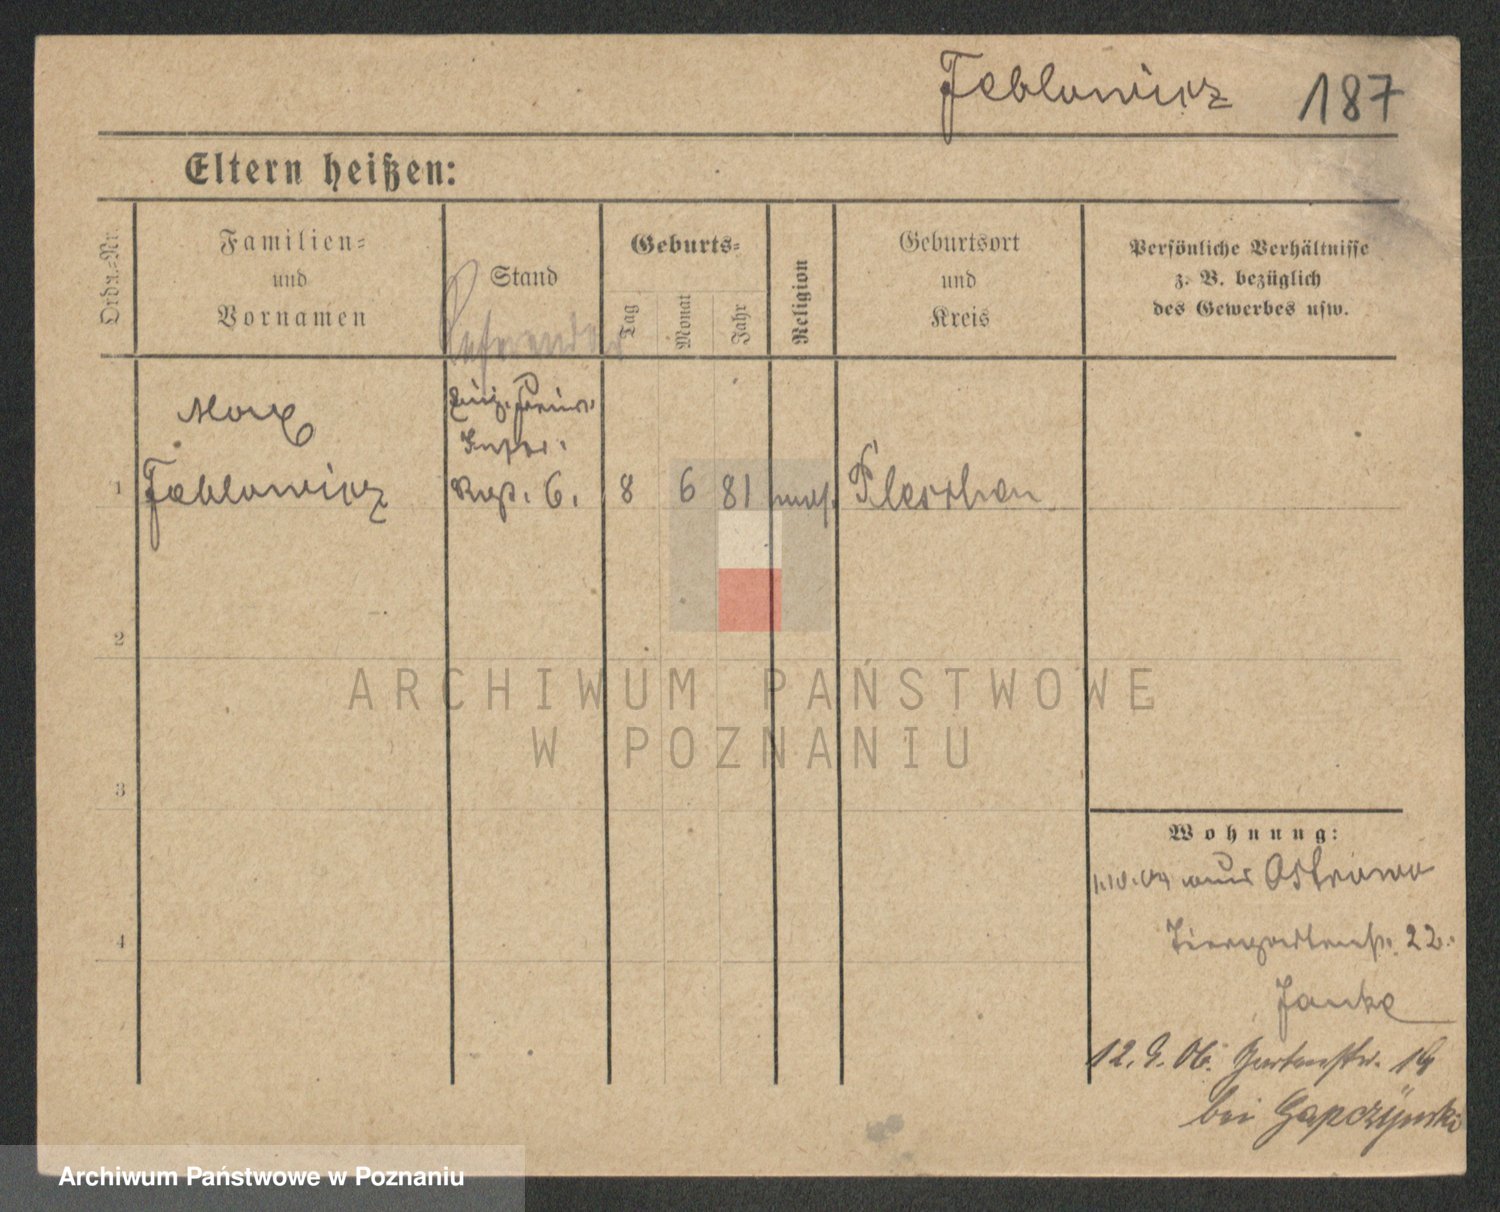 Jablowicz 187
Eltern heißen:
Ordn.-Nr.
Familien-
und
Vornamen
Stand
Geburts-
Tag
Monat
Jahr
Religion
Geburtsort
und
Kreis
Persönliche Verhältnisse
z. B. bezüglich
des Gewerbes usw.
Referendar
Max
Infter.
1 Jablowicz
Regt. 6. 8 6 81 mos. Pleschen
2
3
4
Wohnung:
1.10.04 aus Ostrowo
Tiergartenstr. 22.
Janke
12. 9. 06. Gartenstr. 19
bei Gapczynski
ARCHIWUM PAŃSTWOWE
W POZNANIU
Archiwum Państwowe w Poznaniu